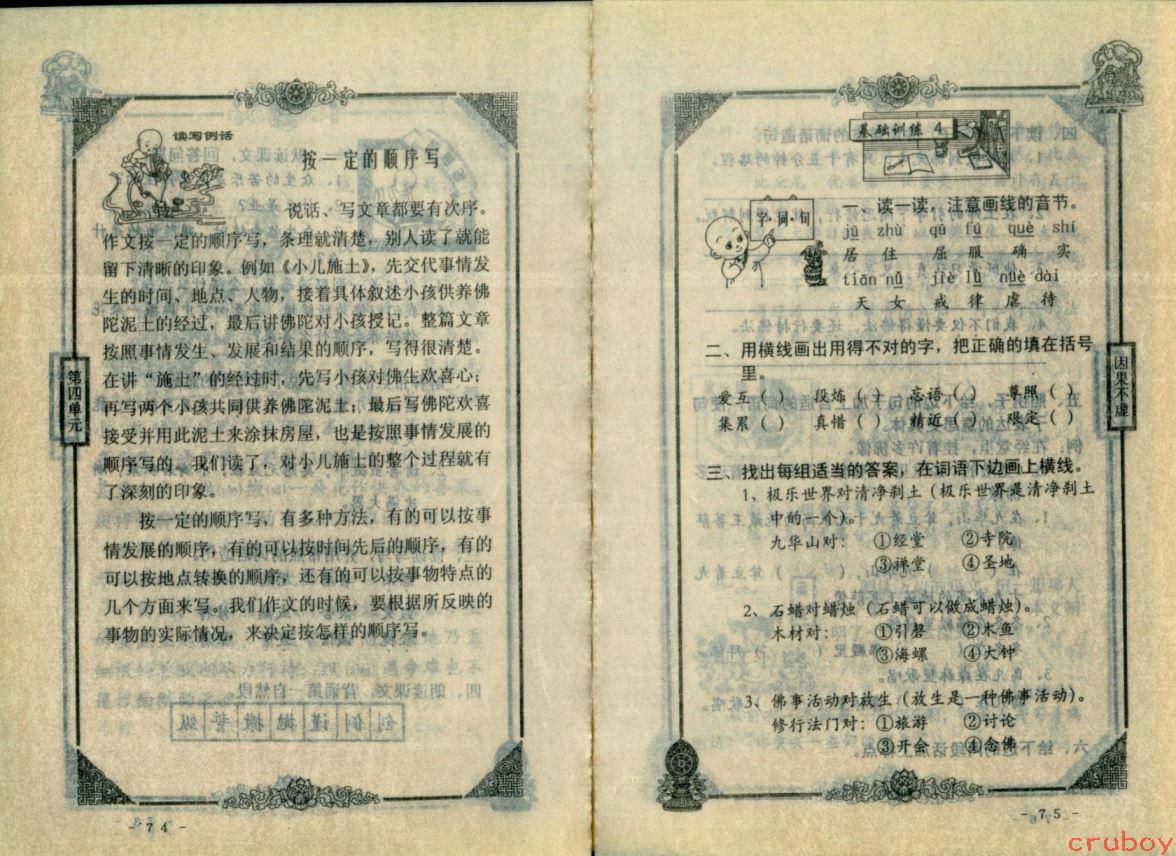 读写例话
按一定的顺序写
说话、写文章都要有次序。
作文按一定的顺序写，条理就清楚，别人读了就能
留下清晰的印象。例如《小儿施土》，先交代事情发
生的时间、地点、人物，接着具体叙述小孩供养佛
陀泥土的经过，最后讲佛陀对小孩授记。整篇文章
按照事情发生、发展和结果的顺序，写得很清楚。
在讲“施土”的经过时，先写小孩对佛生欢喜心；
再写两个小孩共同供养佛陀泥土；最后写佛陀欢喜
接受并用此泥土来涂抹房屋，也是按照事情发展的
顺序写的。我们读了，对小儿施土的整个过程就有
了深刻的印象。
按一定的顺序写，有多种方法，有的可以按事
情发展的顺序，有的可以按时间先后的顺序，有的
可以按地点转换的顺序，还有的可以按事物特点的
几个方面来写。我们作文的时候，要根据所反映的
事物的实际情况，来决定按怎样的顺序写。
第四单元
- 74 -
基础训练 4
字·词·句
一、读一读，注意画线的音节。
jū zhù qū fú què shí
居 住 屈 服 确 实
tiān nǚ jiè lǜ nüè dài
天 女 戒 律 虐 待
二、用横线画出用得不对的字，把正确的填在括号
里。
爱互（ ） 段炼（ ） 忘语（ ） 尊照（ ）
集累（ ） 真惜（ ） 精近（ ） 艰定（ ）
三、找出每组适当的答案，在词语下边画上横线。
1、极乐世界对清净刹土（极乐世界是清净刹土
中的一个）。
九华山对： ①经堂 ②寺院
③禅堂 ④圣地
2、石蜡对蜡烛（石蜡可以做成蜡烛）。
木材对： ①引磬 ②木鱼
③海螺 ④大钟
3、佛事活动对放生（放生是一种佛事活动）。
修行法门对：①旅游 ②讨论
③开会 ④念佛
因果不虚
- 75 -
cruboy